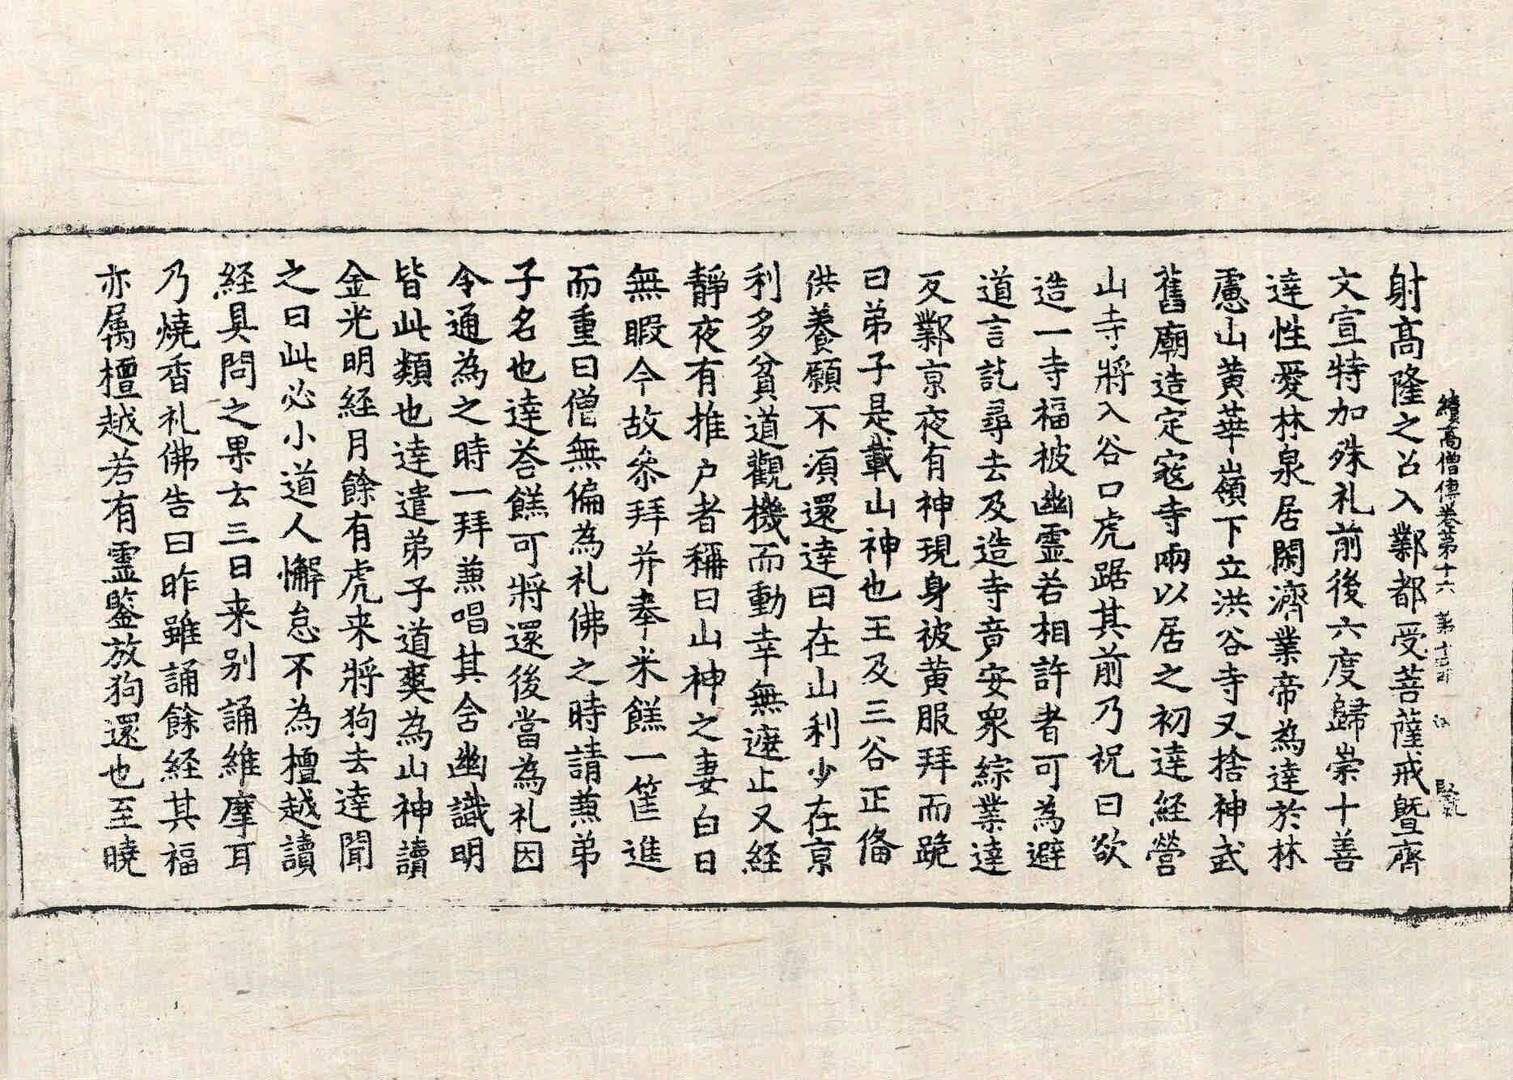 續高僧傳卷第十六 第十
射高隆之召入鄴都受菩薩戒暨齊
文宣特加殊礼前後六度歸崇十善
達性愛林泉居閑濟業帝為達於林
慮山黄華嶺下立洪谷寺又捨神武
舊廟造定寇寺兩以居之初達經營
山寺將入谷口虎踞其前乃祝曰欲
造一寺福被幽靈若相許者可為避
道言訖尋去及造寺竟安衆綜業達
反鄴京夜有神現身被黄服拜而跪
曰弟子是載山神也王及三谷正俻
供養願不湏還達曰在山利少在京
利多貧道觀機而動幸無遮止又経
靜夜有推户者稱曰山神之妻白日
無暇今故叅拜并奉米餻一筐進
而重曰僧無偏為礼佛之時請兼弟
子名也達荅餻可將還後當為礼因
令通為之時一拜兼唱其舍幽識明
皆此類也達遣弟子道爽為山神讀
金光明経月餘有虎来將狗去達聞
之曰此必小道人懈怠不為檀越讀
経具問之果云三日来别誦維摩耳
乃燒香礼佛告曰昨雖誦餘経其福
亦属檀越若有靈鑒放狗還也至曉